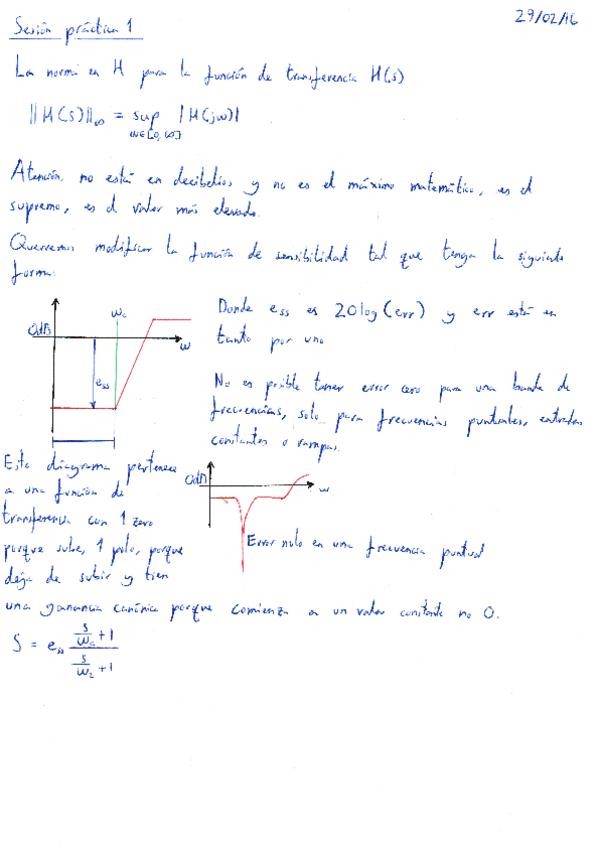 29/02/16
Sesión práctica 1
La norma en H para la función de transferencia H(s)
||H(s)||∞ = sup |H(jω)|
ω∈[0,∞]
Atención, no está en decibelios y no es el máximo matemático, es el
supremo, es el valor más elevado.
Querremos modificar la función de sensibilidad tal que tenga la siguiente
forma:
0dB
ωc
ω
ess
Donde ess es 20log(err) y err está en
tanto por uno
No es posible tener error cero para una banda de
frecuencias, solo para frecuencias puntuales, entradas
constantes o rampas.
Este diagrama pertenece
a una función de
transferencia con 1 zero
porque sube, 1 polo, porque
deja de subir y tien
una ganancia canónica porque comienza a un valor constante no 0.
0dB
ω
Error nulo en una frecuencia puntual
S = ess (s/ωc + 1)/(s/ω2 + 1)